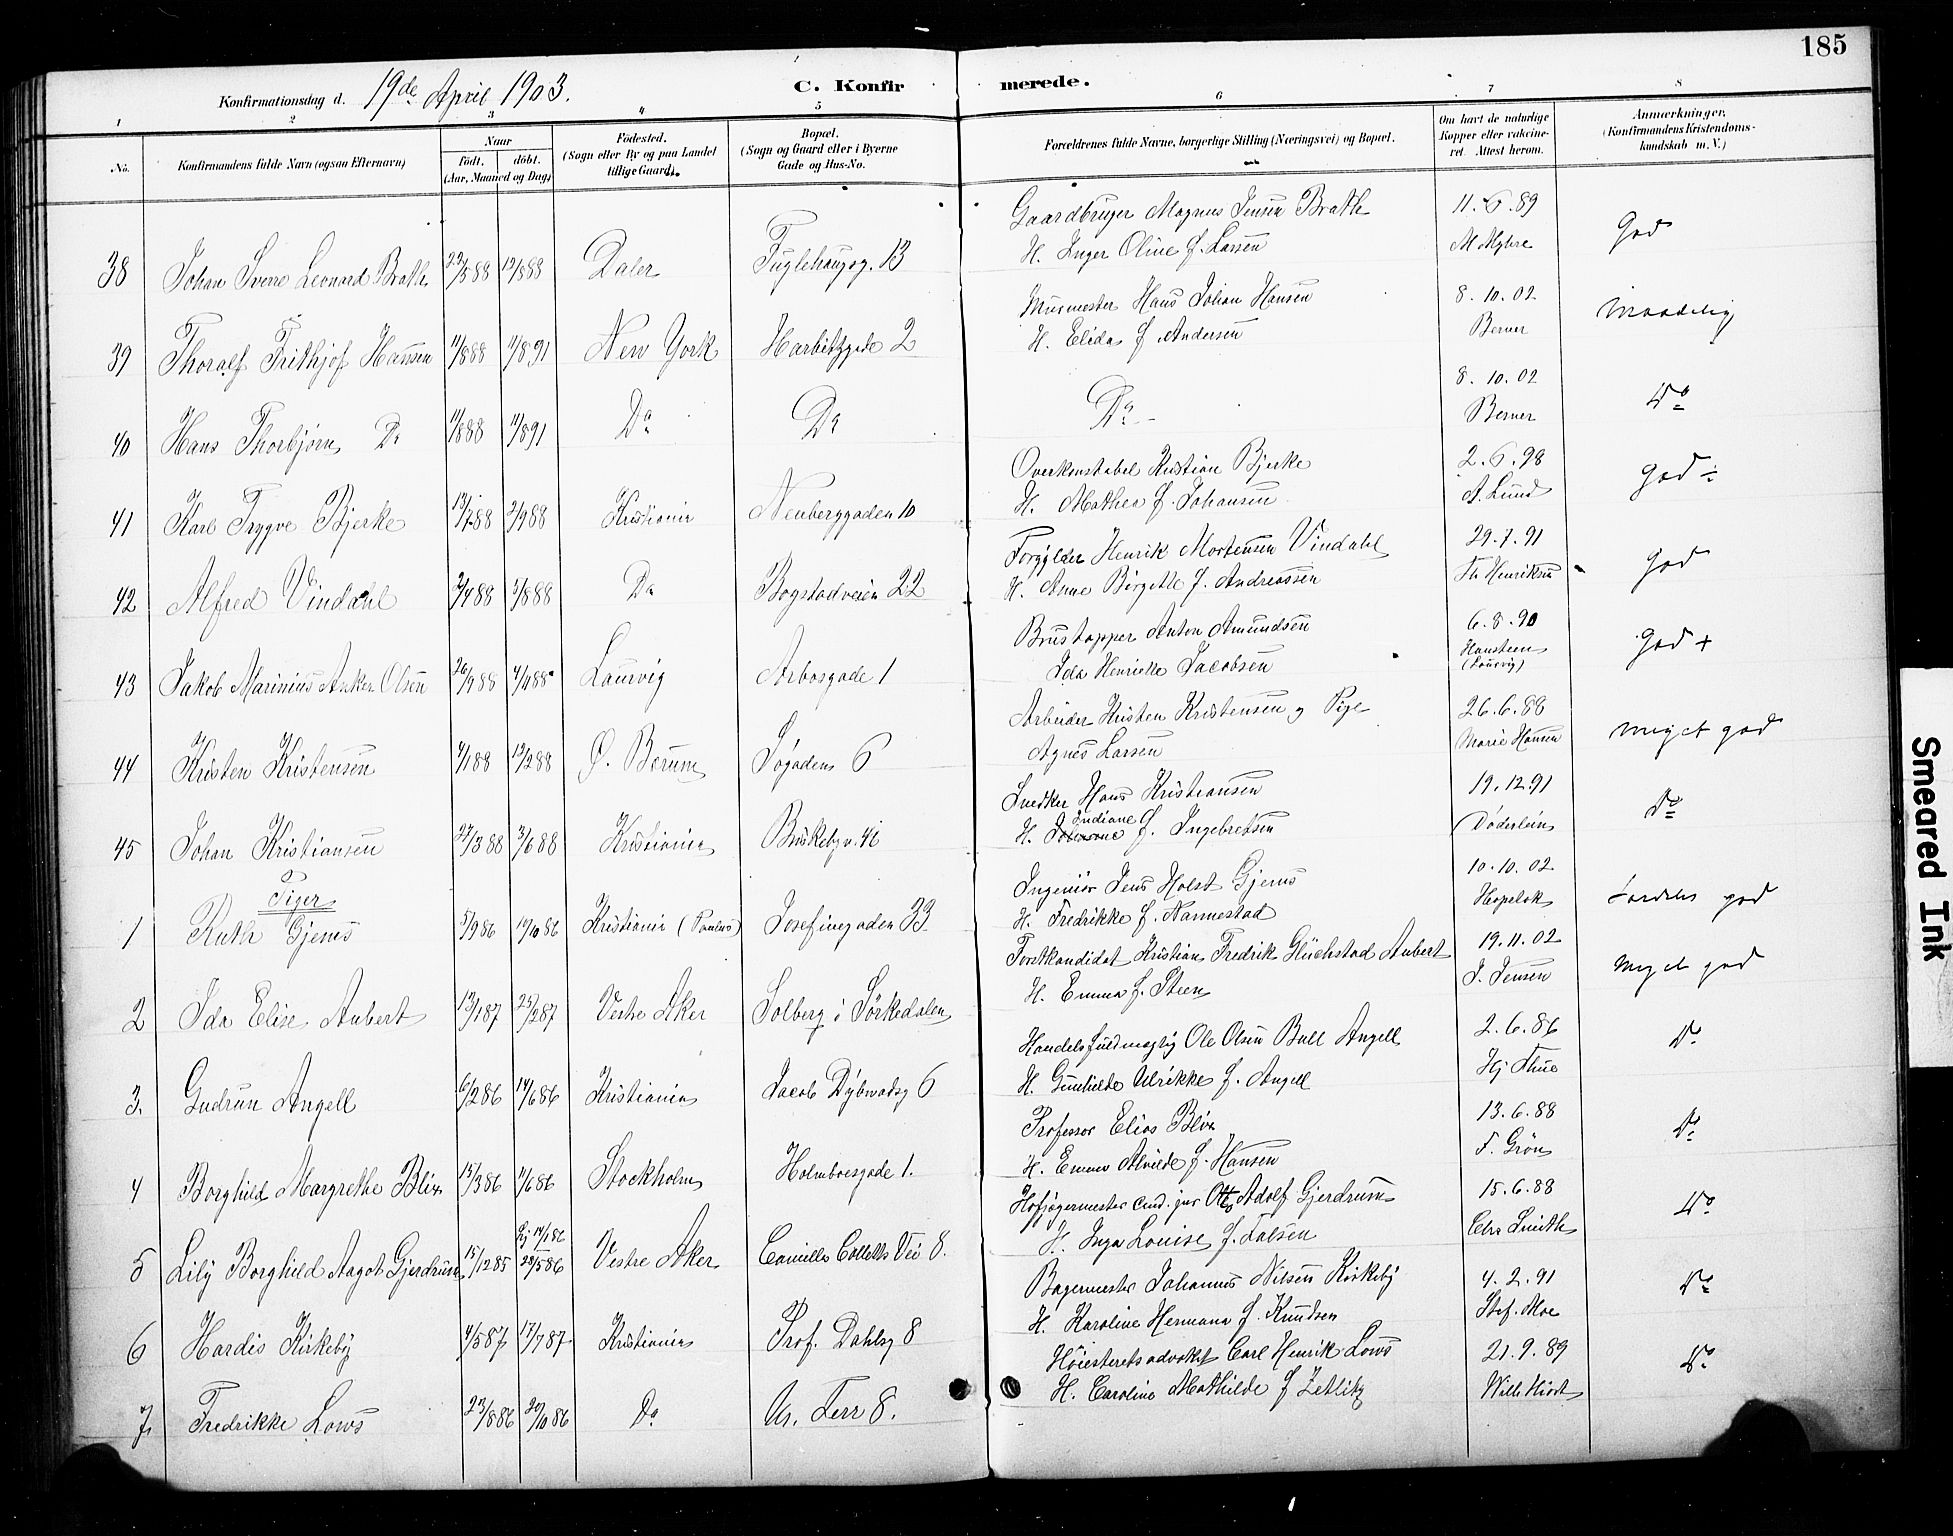 185
Konfirmationsdag d. 19de April 1903.
C. Konfirmerede.
1 2 3 4 5 6 7 8
No. Konfirmandens fulde Navn (ogsaa Efternavn) Naar født, døbt. (Aar, Maaned og Dag). Fødested. (Sogn eller By og paa Landet tillige Gaard). Bopæl. (Sogn og Gaard eller i Byerne Gade og Hus-No. Forældrenes fulde Navne, borgerlige Stilling (Næringsvei) og Bopæl. Om havt de naturlige Kopper eller vakcineret. Attest herom. Anmærkninger. (Konfirmandens Kristendomskundskab m. V.)
Gaardbruger Magnus Jensen Brath 11.6.89
38 Johan Sverre Leonard Brath 29/5 88 12/8 88 Daler Fuglehaugg. 13 H. Inger Oline f. Larsen M Myhre God
Murmester Hans Johan Hansen 8.10.02
39 Thoralf Frithjof Hansen 11/8 88 11/8 91 New York Harbitzgade 2 H. Elida f Andersen Berner Maadelig
8.10.02
40 Hans Thorbjørn Do 11/8 88 11/8 91 Do Do Do Berner Do
Overkonstabel Kristian Bjerke 2.6.98
41 Karl Trygve Bjerke 13/7 88 2/9 88 Kristiania Neuberggaden 10 H. Mathea f. Johansen A. Lund God ÷
Forgylder Henrik Mortensen Vindahl 29.7.91
42 Alfred Vindahl 2/4 88 5/8 88 Do Bogstadveien 22 H. Anne Börgette f. Andreassen Th Henriksen God
Brustapper Anton Amundsen 6.8.90
43 Jakob Marinius Anker Olsen 26/9 88 4/11 88 Laurvig Arbosgade 1 Ida Henriette Jacobsen Hansteen (Laurvig) God +
Arbeider Kristen Kristensen og Pige 26.6.88
44 Kristen Kristensen 4/1 88 12/2 88 Ø. Bærum Søgaden 6 Agnes Larsen Marie Hansen Meget god
Snedker Hans Kristiansen 19.12.91
45 Johan Kristiansen 27/3 88 3/6 88 Kristiania Briskebyv. 46 H. Indiane f. Ingebretsen Døderlein Do
Piger
Ingeniör Jens Holst Gjerns 10.10.02
1 Ruth Gjerns 5/9 86 19/10 86 Kristiania (Paulus) Josefinegaden 33 H. Fredrikke f. Nannestad Hopstok Særdeles god
Forstkandidat Kristian Fredrik Glückstad Aubert 19.11.02
2 Ida Elise Aubert 13/1 87 25/2 87 Vestre Aker Solberg i Sörkedalen H. Emma f. Steen J. Jensen Meget god
Handelsfuldmægtig Ole Olsen Bull Angell 2.6.86
3. Gudrun Angell 6/2 86 14/6 86 Kristiania Jacob Dybwadsg 6 H. Gunhilde Ulrikke f. Angell Hj Thue Do
Professor Elias Blix 13.6.88
4 Borghild Margrethe Blix 15/3 86 11/6 86 Stockholm Holmboesgade 1. H. Emma Alvilde f. Hansen F. Grön Do
Hofjægermester cand. jur Otto Adolf Gjerdrum 15.6.88
5 Lily Borghild Aagot Gjerdrum 15/12 85 Hj 14/1 86 28/5 86 Vestre Aker Camilla Colletts Vei 8. H. Inga Louise f. Falsen Chr Smith Do
Bagermester Johannes Nilsen Kirkeby 4.2.91
6 Hardis Kirkeby 4/5 87 17/7 87 Kristiania Prof. Dahlsg 8 H. Karoline Hermana f. Knudsen Stef. Moe Do
Höiesteretsadvokat Carl Henrik Lows 21.9.89
7. Fredrikke Lows 23/8 86 20/10 86 Do Ur. Terr 8. H. Caroline Mathilde f Zetlitz Wilh Hiort Do
Smeared Ink